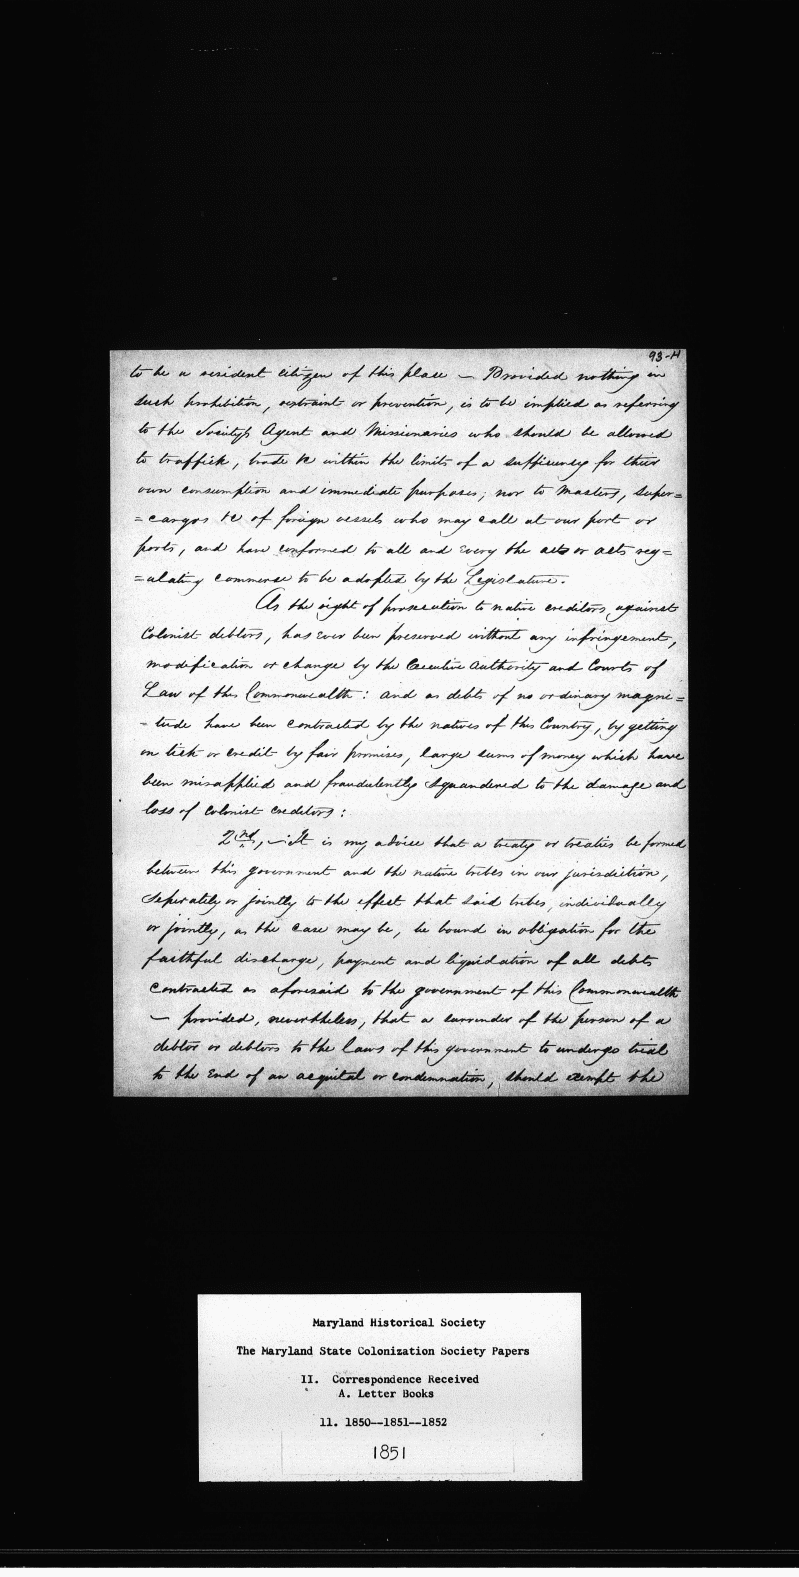 93-H
to be a resident citizen of this place — Provided nothing in
such prohibition, restraint or prevention, is to be implied as referring
to the Society's Agent and Missionaries who should be allowed
to traffick, trade &c within the limits of a sufficiency for their
own consumption and immediate purposes; nor to Masters, Super=
=cargos &c of foreign vessels who may call at our port or
ports, and have conformed to all and every the act or acts reg=
=ulating commerce to be adopted by the Legislature.
As the right of prosecution to native creditors against
Colonist debtors, has ever been preserved without any infringement,
modification or change by the Executive Authority and Courts of
Law of this Commonwealth: and as debts of no ordinary magni=
=tude have been contracted by the natives of this Country, by getting
on tick or credit by fair promises, large sums of money which have
been misapplied and fraudulently squandered to the damage and
loss of Colonist creditors:
2nd, — It is my advise that a treaty or treaties be formed
between this government and the native tribes in our jurisdiction,
seperately or jointly to the effect that said tribes, individually
or jointly, as the case may be, be bound in obligation for the
faithful discharge, payment and liquidation of all debts
contracted as aforesaid to the government of this Commonwealth
— provided, nevertheless, that a surrender of the person of a
debtor or debtors to the laws of this government to undergo trial
to the end of an acquital or condemnation, should exempt the
Maryland Historical Society
The Maryland State Colonization Society Papers
II. Correspondence Received
A. Letter Books
11. 1850--1851--1852
1851